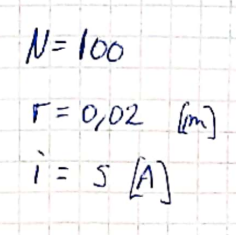 N = 100
r = 0,02 [m]
i = 5 [A]